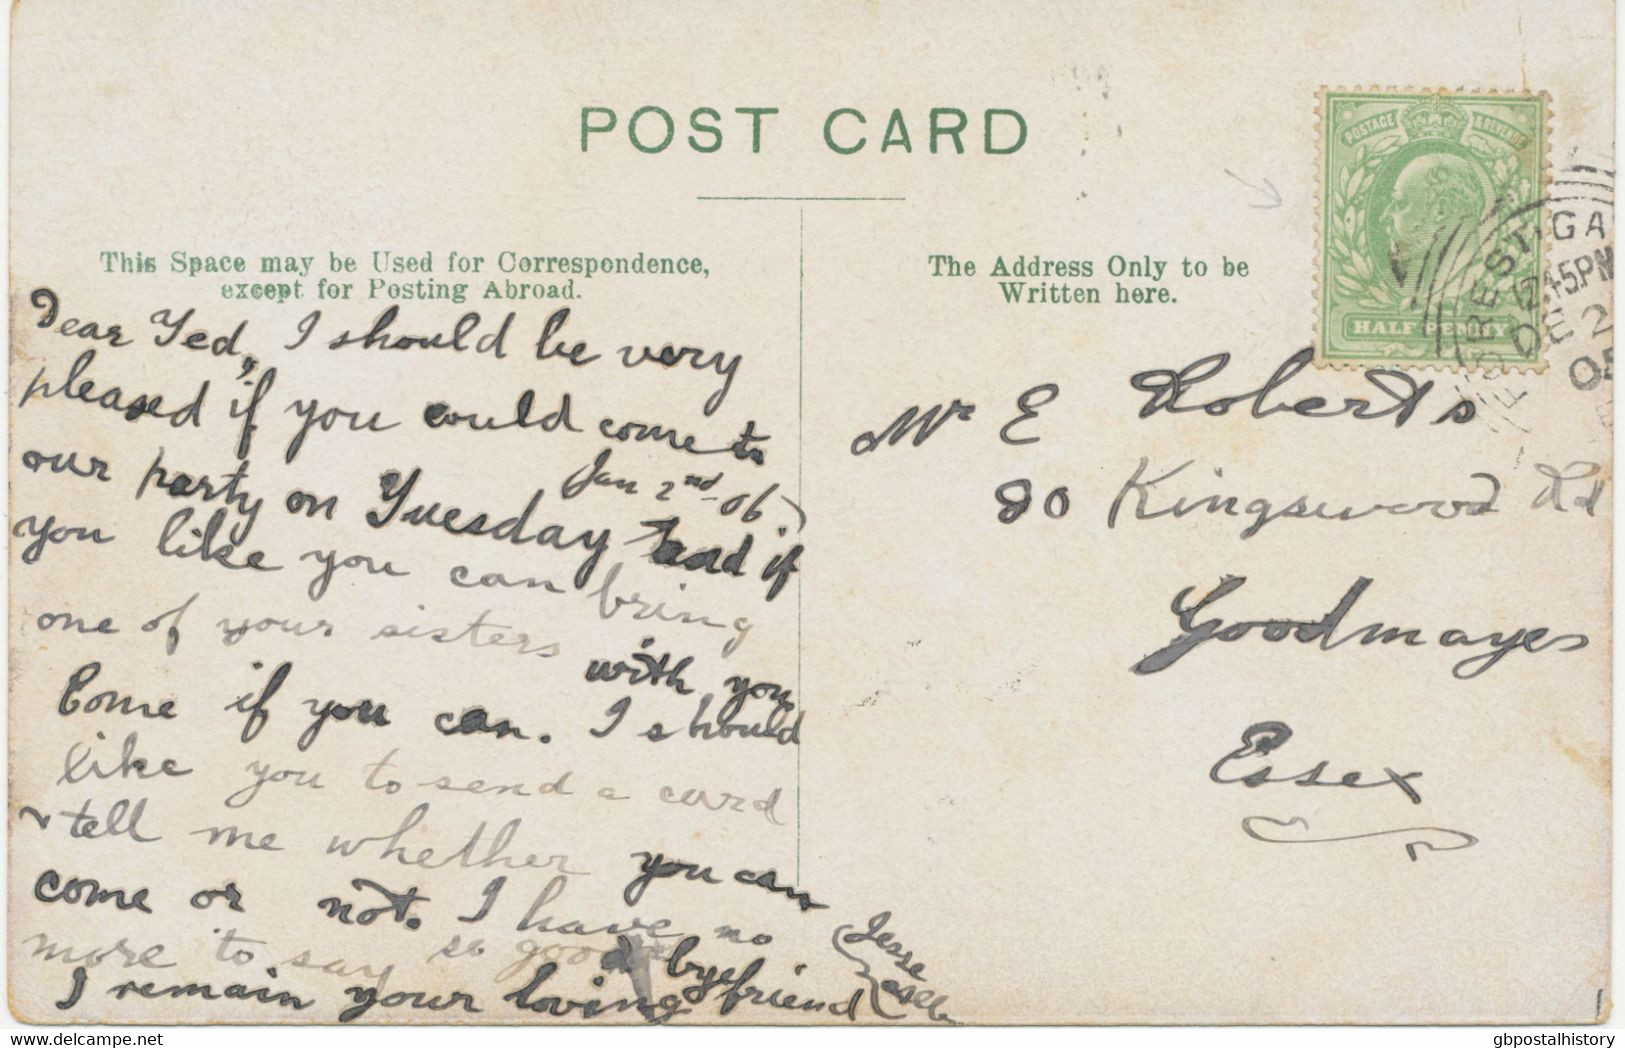 POST CARD
This Space may be Used for Correspondence,
except for Posting Abroad.
Dear Ted, I should be very
pleased if you could come to
our party on Tuesday Jan 2nd-06. and if
you like you can bring
one of your sisters with you
Come if you can. I should
like you to send a card
& tell me whether you can
come or not. I have no
more to say so good bye
I remain your loving friend
Jesse
The Address Only to be
Written here.
Mr E Roberts
90 Kingswood Rd
Goodmayes
Essex
POSTAGE & REVENUE
HALF PENNY
FOREST·GA
12.45PM
DE 2
05
delcampe.net
gbpostalhistory